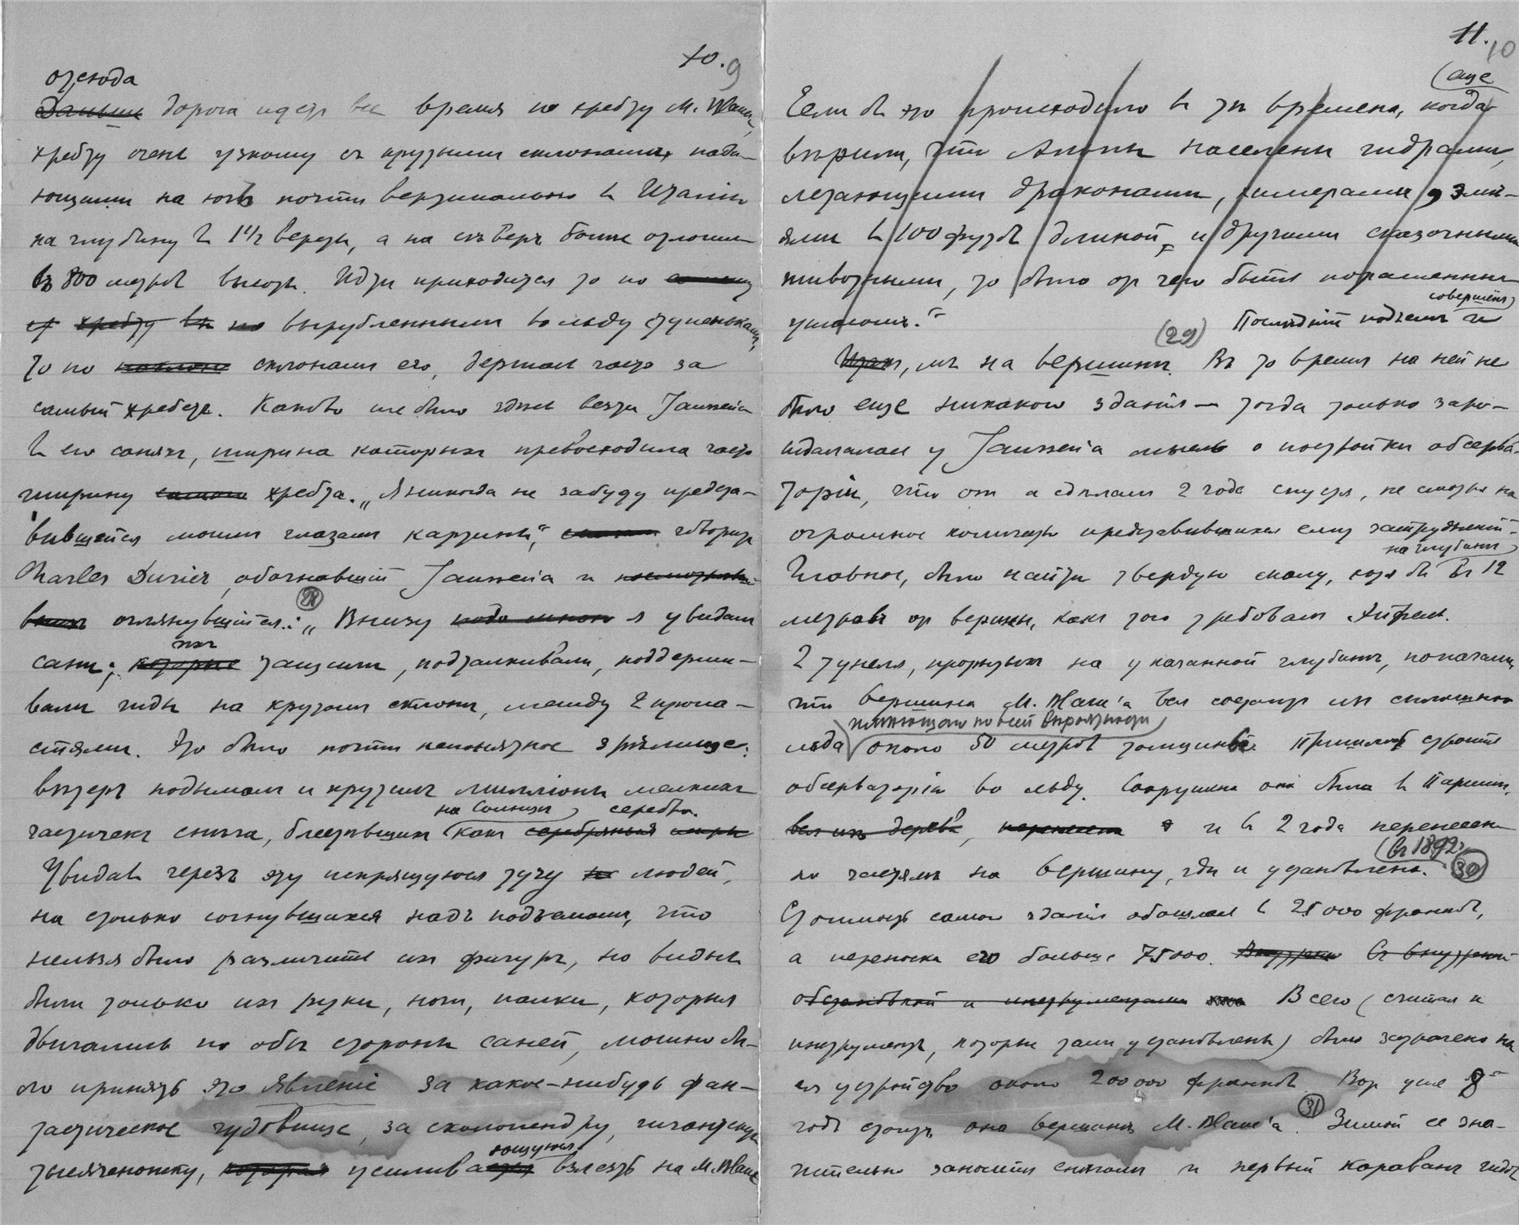 10. 9
отсюда
Дальше дорога идетъ все время по хребту M. Blanc,
хребту очень узкому съ крутыми склонами, пада-
ющими на югъ почти вертикально въ Италію
на глубину въ 1 1/2 версты, а на сѣверъ более отлогими
въ 800 метровъ высоты. Идти приходится то по
хребту въ по вырубленнымъ во льду ступенькамъ,
то по склонамъ его, держась часто за
самый хребетъ. Каково же было здѣсь везти Janssen'а
въ его саняхъ, ширина которыхъ превосходила часто
ширину самого хребта. „Я никогда не забуду предста-
вившейся моимъ глазамъ картины“, говоритъ
Charles Durier, обогнавшій Janssen'а и
оглянувшійся: (28) „Внизу подо мною я увидалъ
сани; которые ихъ тащили, подталкивали, поддержи-
вали гиды на крутомъ склонѣ, между 2 пропа-
стями. Это было почти непонятное зрѣлище:
вѣтеръ подымалъ и крутилъ милліоны мелкихъ
на солнцѣ серебро.
частичекъ снѣга, блестѣвшихъ какъ серебряныя искры
Увидавъ черезъ эту искрящуюся тучу людей,
на столько согнувшихся надъ подъемомъ, что
нельзя было различить ихъ фигуръ, но видны
были только ихъ руки, ноги, палки, которыя
двигались по обѣ стороны саней, можно бы-
ло принять это явленіе за какое-нибудь фан-
тастическое чудовище, за сколопендру, гигантскую
ющуюся
тысяченожку, которая усилива взлезть на M. Blanc

11. 10
(еще
Если бъ это происходило въ тѣ времена, когда
вѣрили, что Альпы населены гидрами,
летающими драконами, химерами, змѣ-
ями въ 100 футовъ длиной, и другими сказочными
животными, то было отъ чего быть потрясеннымъ
умомъ.“
(29) Последній подъемъ совершенъ
Итакъ, мы на вершинѣ. Въ то время на ней не
было еще никакого зданія — тогда только заро-
ждалась у Janssen'а мысль о постройкѣ обсерва-
торіи, что онъ и сдѣлалъ 2 года спустя, не смотря на
огромное количество представившихся ему затрудненій.
на глубинѣ
Главное, было найти твердую скалу, хотя бъ въ 12
метровъ отъ вершины, какъ того требовалъ Эйфель.
2 тунеля, прорытыхъ на указанной глубинѣ, показали,
что вершина M. Blanc'а вся состоитъ изъ сплошного
льда около 50 метровъ толщины. Пришлось строить
обсерваторію во льду. Сооружена она была въ Парижѣ,
вся изъ дерева, перенесена и въ 2 года перенесена
(въ 1892) (30)
по частямъ на вершину, гдѣ и установлена.
Стоимость самого зданія обошлась въ 25000 франковъ,
а переноска его больше 75000. Внутрен Съ внутренней
обстановкой и инструментами Всего (считая и
инструменты, которые тамъ установлены) было затрачено на
ея устройство около 200000 франковъ. Вотъ уже 8й
годъ стоитъ она вершинѣ M. Blanc'а. (31) Зимой ее зна-
чительно заноситъ снѣгомъ и первый караванъ гидовъ